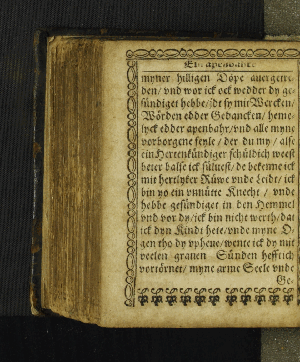 myner hilligen Döpe auergetre-
den/ vnd wor ick ock wedder dy ge-
sündiget hebbe/ idt sy mit Wercken/
Wörden edder Gedancken/ heme-
lyck edder apenbahr/ vnd alle myne
vorborgene feyle/ der du my/ alse
ein Hertenkündiger schüldich weest
beter alse ick süluest/ de bekenne ick
mit hertlyker Rüwe vnde Leidt/ ick
bin yo ein vnnütte Knecht/ vnde
hebbe gesündiget in den Hemmel
vnd vor dy/ ick bin nicht werth/ dat
ick dyn Kindt hete/ vnde myne O-
gen tho dy vpheue/ wente ick dy mit
veelen grauen Sünden hefftich
vortörnet/ myne arme Seele vnde
Ge-